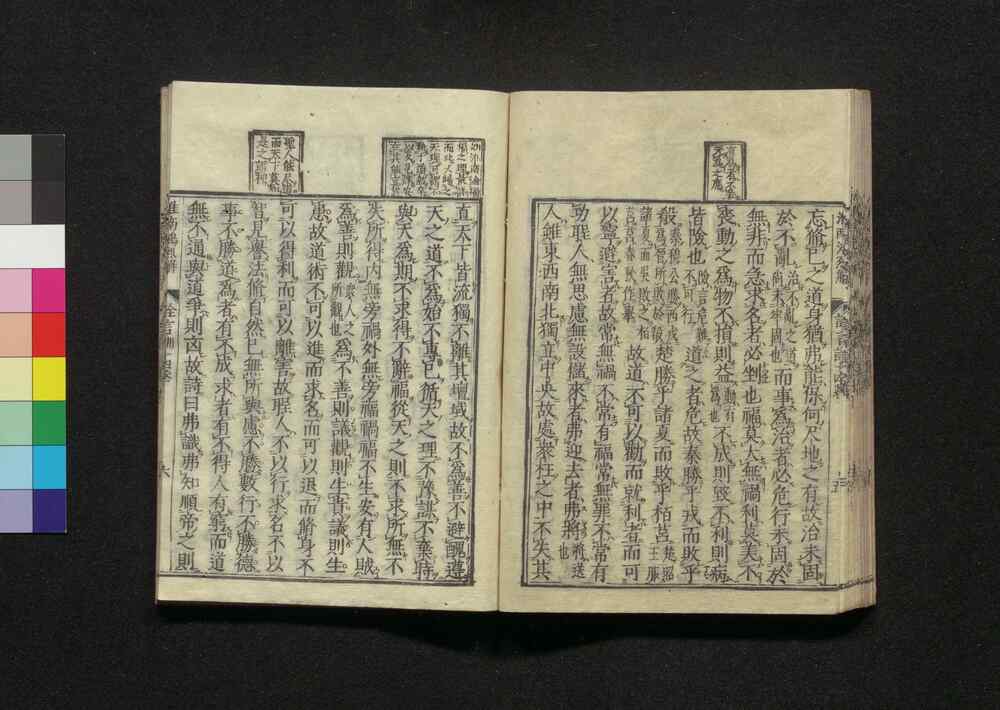 忘脩己之道身猶弗能保何尺地之有故治未固
於不亂治不亂之道尚未牢固也而事爲治者必危行未固於
無非而急求名者必剉也福莫大無禍利莫美不
喪動之爲物不損則益動有爲也不成則毀不利則病
皆險也險言危難不可行道之者危故秦勝乎戎而敗乎
殽秦穆公勝西戎爲晉所敗於殽楚勝乎諸夏而敗乎栢莒楚昭王服
諸夏而吳敗之栢莒莒春秋作舉故道不可以勸而就利者而可
以寧避害者故常無禍不常有福常無罪不常有
功聖人無思慮無設儲來者弗迎去者弗將將送也
人雖東西南北獨立中央故處衆枉之中不失其
直天下皆流獨不離其壇域故不爲善不避醜遵
天之道不爲始不專己循天之理不豫謀不棄時
與天爲期不求得不辭福從天之則不求所無不
失所得內無旁禍外無旁福禍福不生安有人賊
爲善則觀衆人之所觀也爲不善則議觀則生責議則生
患故道術不可以進而求名而可以退而脩身不
可以得利而可以離害故聖人不以行求名不以
智見譽法脩自然己無所與慮不勝數行不勝德
事不勝道爲者有不成求者有不得人有窮而道
無不通與道爭則凶故詩曰弗識弗知順帝之則